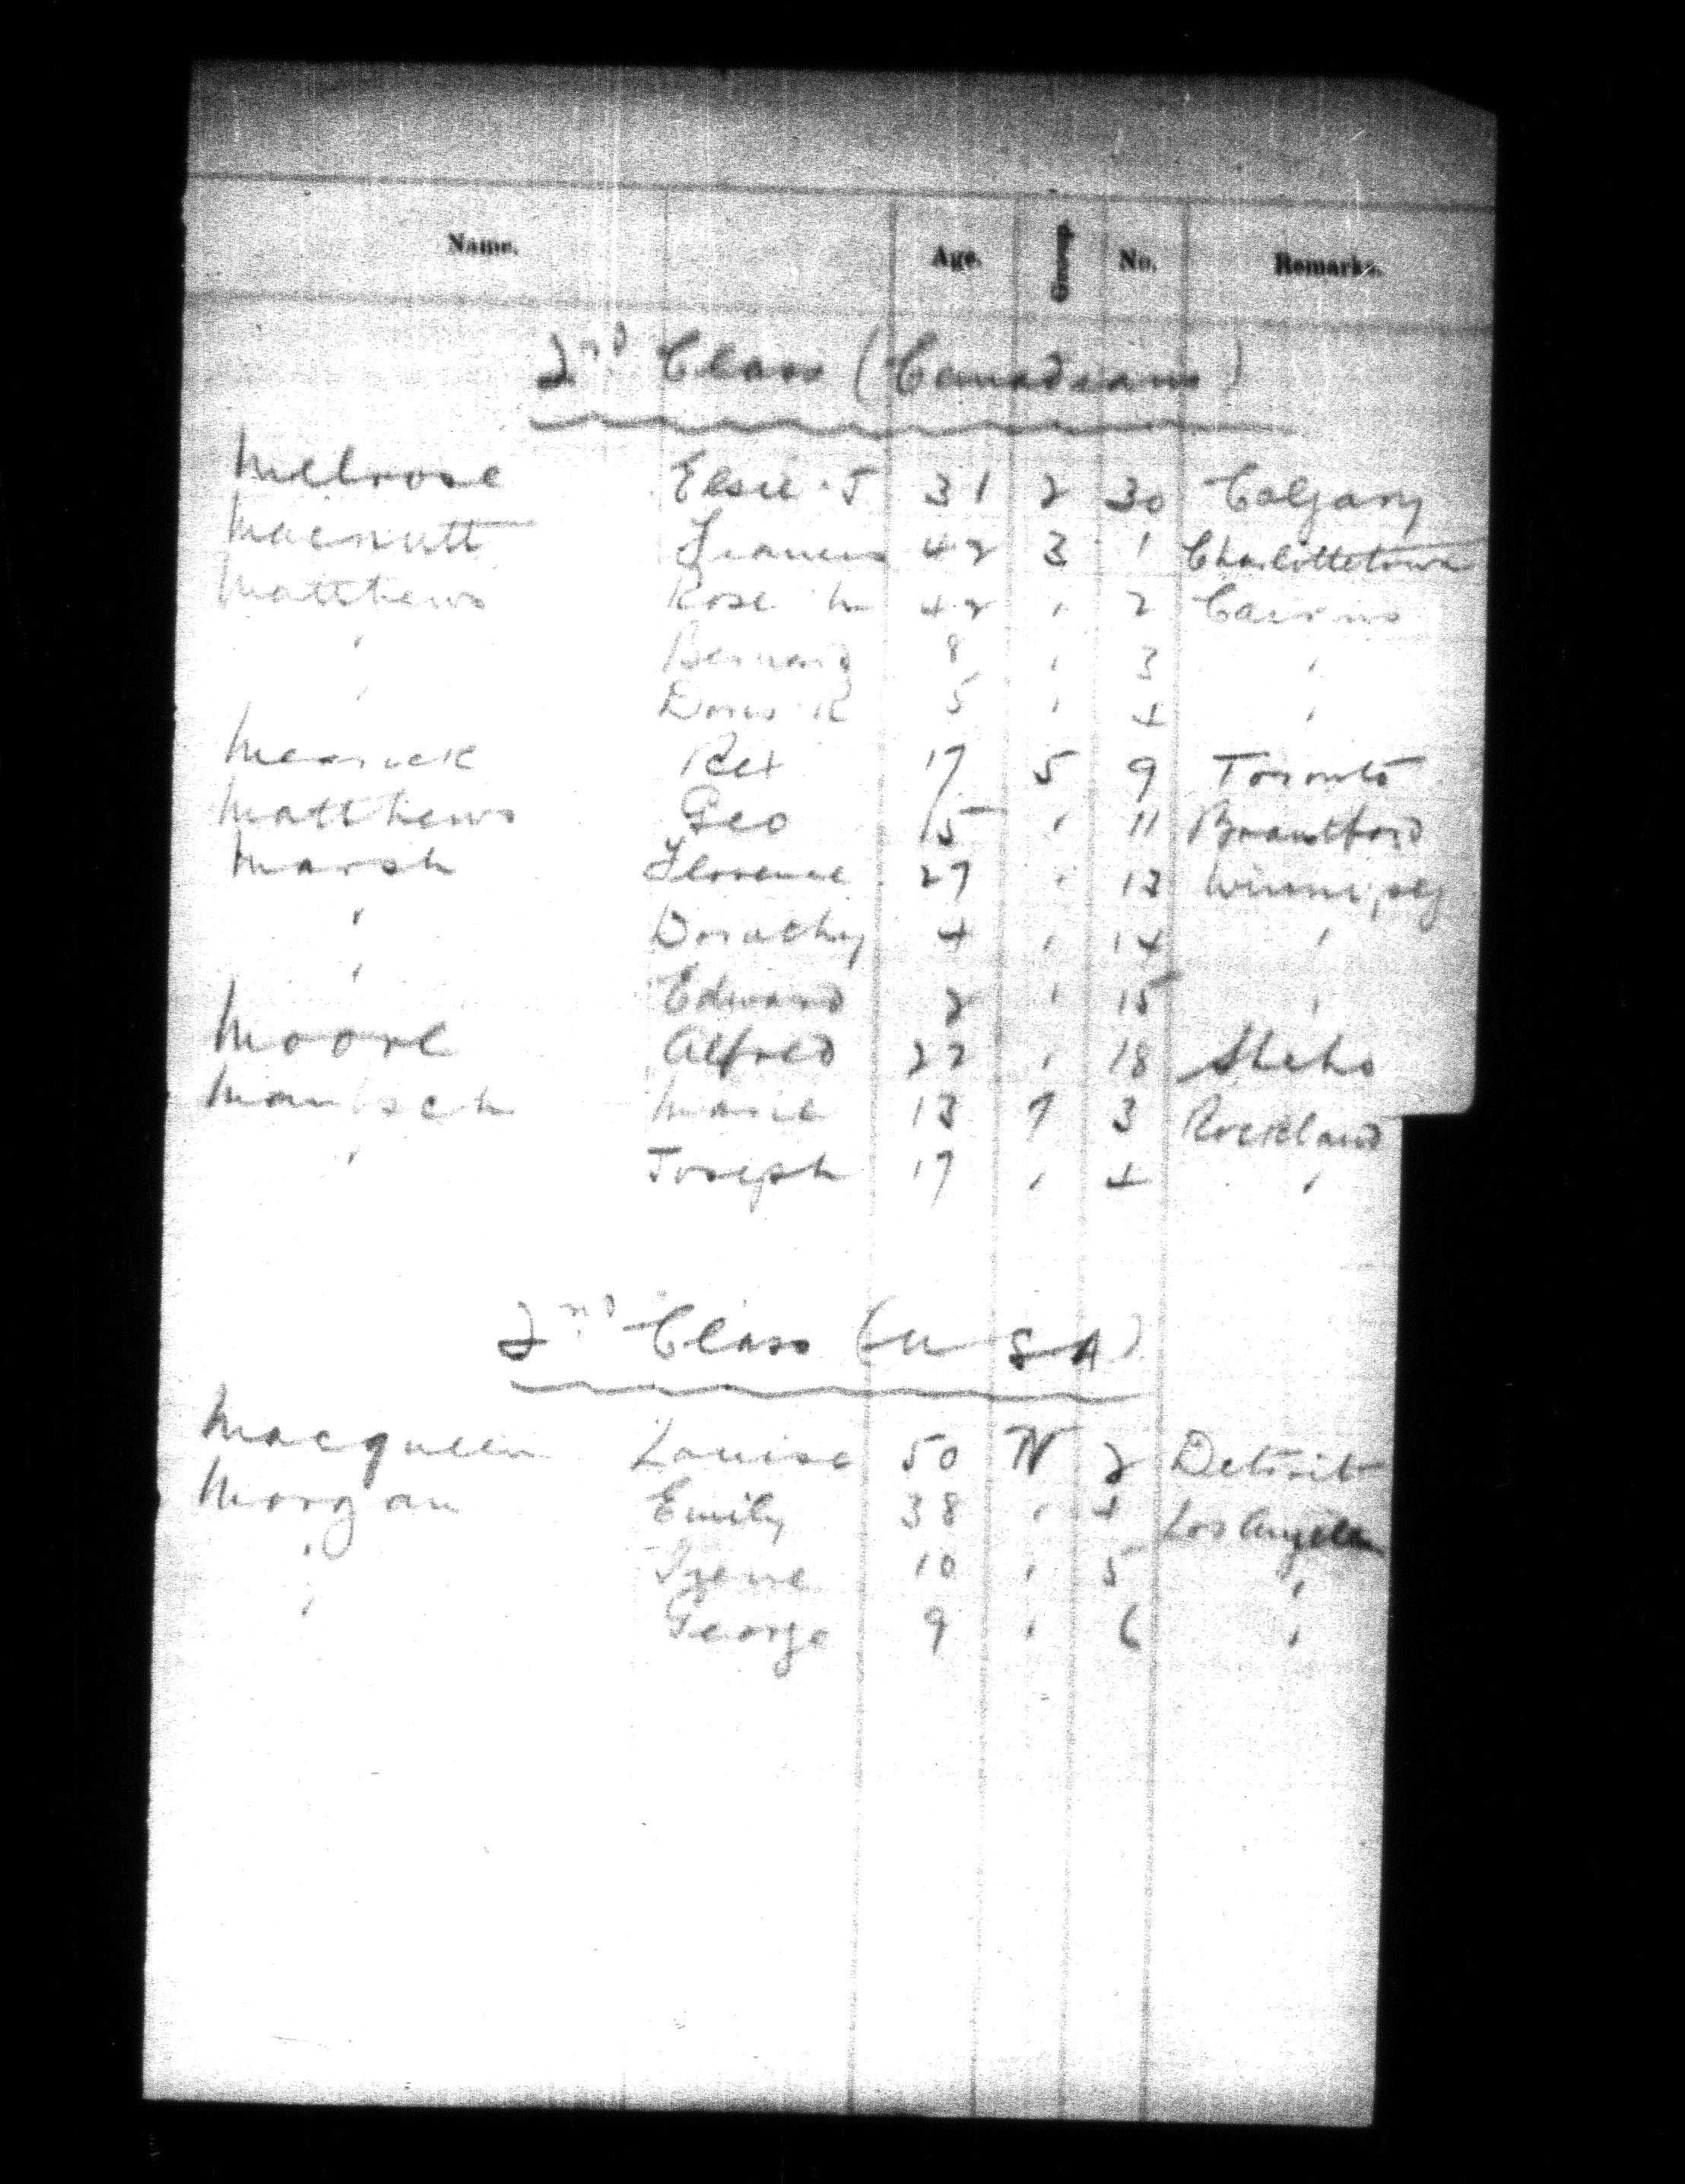 Name. Age. Group No. Remarks.
2nd Class (Canadians)
Melrose Elsie J 31 2 30 Calgary
Macnutt Frances 42 3 1 Charlottetown
Matthews Rose M 42 " 2
" Bernard 8 " 3 "
" Doris R 5 " 4 "
Merrick Rex 17 5 9 Toronto
Matthews Geo 15 " 11 Brantford
Marsh Florence 27 " 13 Winnipeg
" Dorothy 4 " 14 "
" Edward 2 " 15 "
Moore Alfred 22 " 18 Sheho
Marie 13 7 3 Rockland
" Joseph 17 " 4 "
2nd Class (U S A)
Macqueen Louise 50 W 2 Detroit
Morgan Emily 38 " 4 Los Angeles
" Irene 10 " 5 "
" George 9 " 6 "